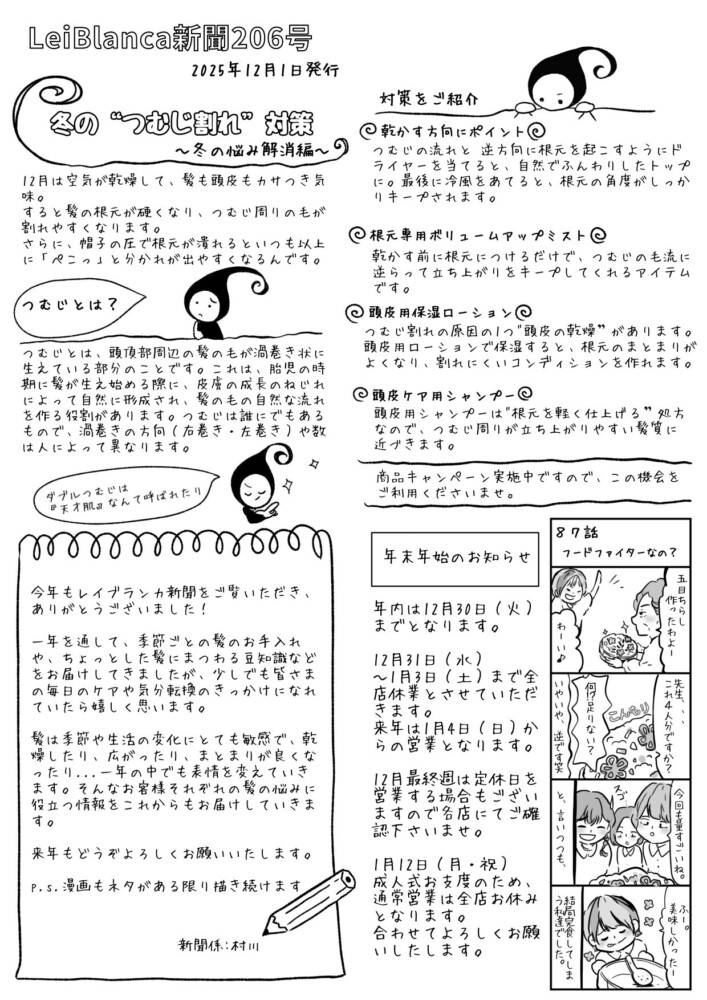 LeiBlanca新聞206号
2025年12月1日発行
冬の “つむじ割れ” 対策
～冬の悩み解消編～
12月は空気が乾燥して、髪も頭皮もカサつき気
味。
すると髪の根元が硬くなり、つむじ周りの毛が
割れやすくなります。
さらに、帽子の圧で根元が潰れるといつも以上
に「ぺこっ」と分かれが出やすくなるんです。
つむじとは？
つむじとは、頭頂部周辺の髪の毛が渦巻き状に
生えている部分のことです。これは、胎児の時
期に髪が生え始める際に、皮膚の成長のねじれ
によって自然に形成され、髪の毛の自然な流れ
を作る役割があります。つむじは誰にでもある
もので、渦巻きの方向（右巻き・左巻き）や数
は人によって異なります。
ダブルつむじは
『天才肌』なんて呼ばれたり
今年もレイブランカ新聞をご覧いただき、
ありがとうございました！
一年を通して、季節ごとの髪のお手入れ
や、ちょっとした髪にまつわる豆知識など
をお届けしてきましたが、少しでも皆さま
の毎日のケアや気分転換のきっかけになれ
ていたら嬉しく思います。
髪は季節や生活の変化にとても敏感で、乾
燥したり、広がったり、まとまりが良くな
ったり...一年の中でも表情を変えていき
ます。そんなお客様それぞれの髪の悩みに
役立つ情報をこれからもお届けしていきま
す。
来年もどうぞよろしくお願いいたします。
P.S.漫画もネタがある限り描き続けます
新聞係：村川
対策をご紹介
乾かす方向にポイント
つむじの流れと 逆方向に根元を起こすようにド
ライヤーを当てると、自然でふんわりしたトップ
に。最後に冷風をあてると、根元の角度がしっか
りキープされます。
根元専用ボリュームアップミスト
乾かす前に根元につけるだけで、つむじの毛流に
逆らって立ち上がりをキープしてくれるアイテム
です。
頭皮用保湿ローション
つむじ割れの原因の1つ“頭皮の乾燥”があります。
頭皮用ローションで保湿すると、根元のまとまりが
よくなり、割れにくいコンディションを作れます。
頭皮ケア用シャンプー
頭皮用シャンプーは“根元を軽く仕上げる” 処方
なので、つむじ周りが立ち上がりやすい髪質に
近づきます。
商品キャンペーン実施中ですので、この機会を
ご利用くださいませ。
年末年始のお知らせ
年内は12月30日（火）
までとなります。
12月31日（水）
～1月3日（土）まで全
店休業とさせていただ
きます。
来年は1月4日（日）か
らの営業となります。
12月最終週は定休日を
営業する場合もござい
ますので各店にてご確
認下さいませ。
1月12日（月・祝）
成人式お支度のため、
通常営業は全店お休み
となります。
合わせてよろしくお願
いしたします。
87話
フードファイターなの？
五目ちらし
作ったわよー
わーい♪
先生、、、
これ4人分ですか？
こんもり
何？足りない？
いやいや、逆です笑
今回も量すごいね。
スゴ…
と、言いつつも、
ふー。
美味しかったー
結局完食してしま
う私達でした。